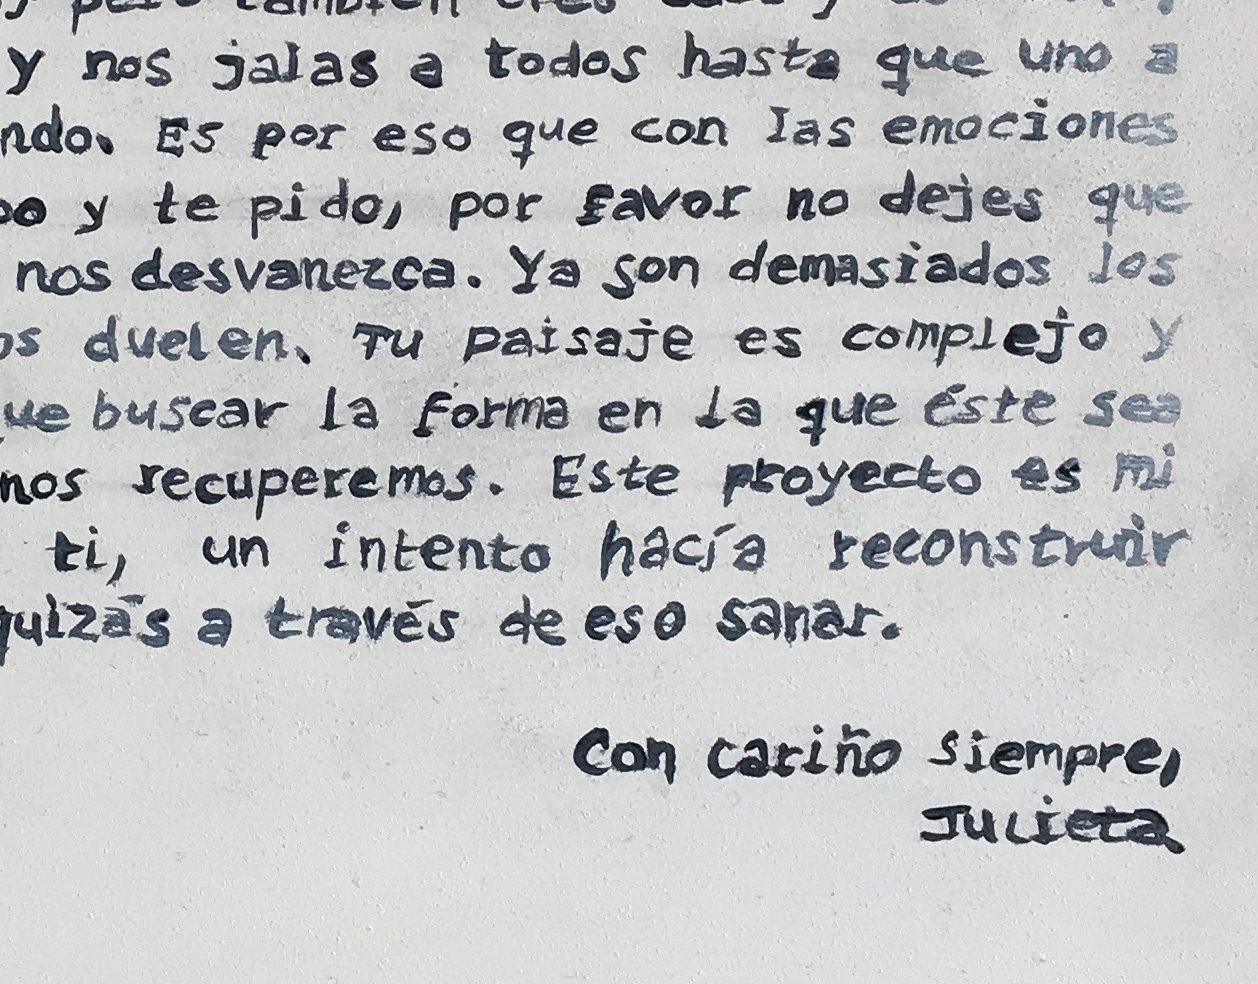 pero también eres
y nos jalas a todos hasta que uno a
ndo. Es por eso que con las emociones
y te pido, por favor no dejes que
nos desvanezca. Ya son demasiados los
os duelen. Tu paisaje es complejo y
ue buscar la forma en la que éste sea
nos recuperemos. Este proyecto es mi
ti, un intento hacía reconstruir
quizás a través de eso sanar.
Con cariño siempre,
Julieta